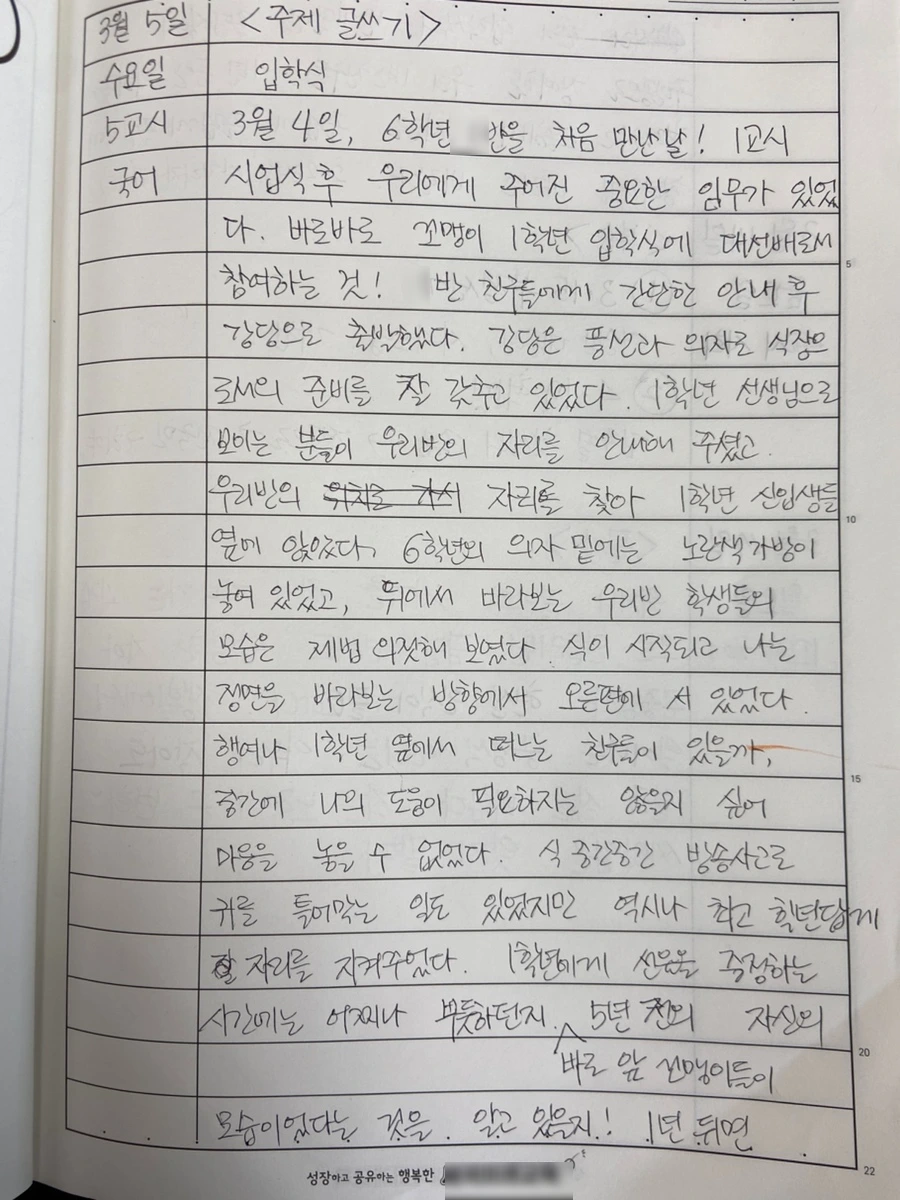 3월 5일 <주제 글쓰기>
수요일 입학식
5교시 3월 4일, 6학년 반을 처음 만난날! 1교시
국어 시업식 후 우리에게 주어진 중요한 임무가 있었
다. 바로바로 꼬맹이 1학년 입학식에 대선배로서
참여하는 것! 반 친구들에게 간단한 안내 후
강당으로 출발했다. 강당은 풍선과 의자로 식장으
로서의 준비를 잘 갖추고 있었다. 1학년 선생님으로
보이는 분들이 우리반의 자리를 안내해 주셨고.
우리반의 위치로 가서 자리를 찾아 1학년 신입생들
옆에 앉았다. 6학년의 의자 밑에는 노란색 가방이
놓여 있었고, 뒤에서 바라보는 우리반 학생들의
모습은 제법 의젓해 보였다. 식이 시작되고 나는
정면을 바라보는 방향에서 오른편에 서 있었다.
행여나 1학년 옆에서 떠느는 친구들이 있을까,
중간에 나의 도움이 필요하지는 않을지 싶어
마음을 놓을 수 없었다. 식 중간중간 방송사고로
귀를 틀어막는 일도 있었지만 역시나 최고 학년답게
잘 자리를 지켜주었다. 1학년에게 선물을 증정하는
시간에는 어찌나 뿌듯하던지. 5년 전의 자신의
바로 앞 꼬맹이들이
모습이었다는 것을. 알고 있을지! 1년 뒤면
성장하고 공유하는 행복한
5
10
15
20
22